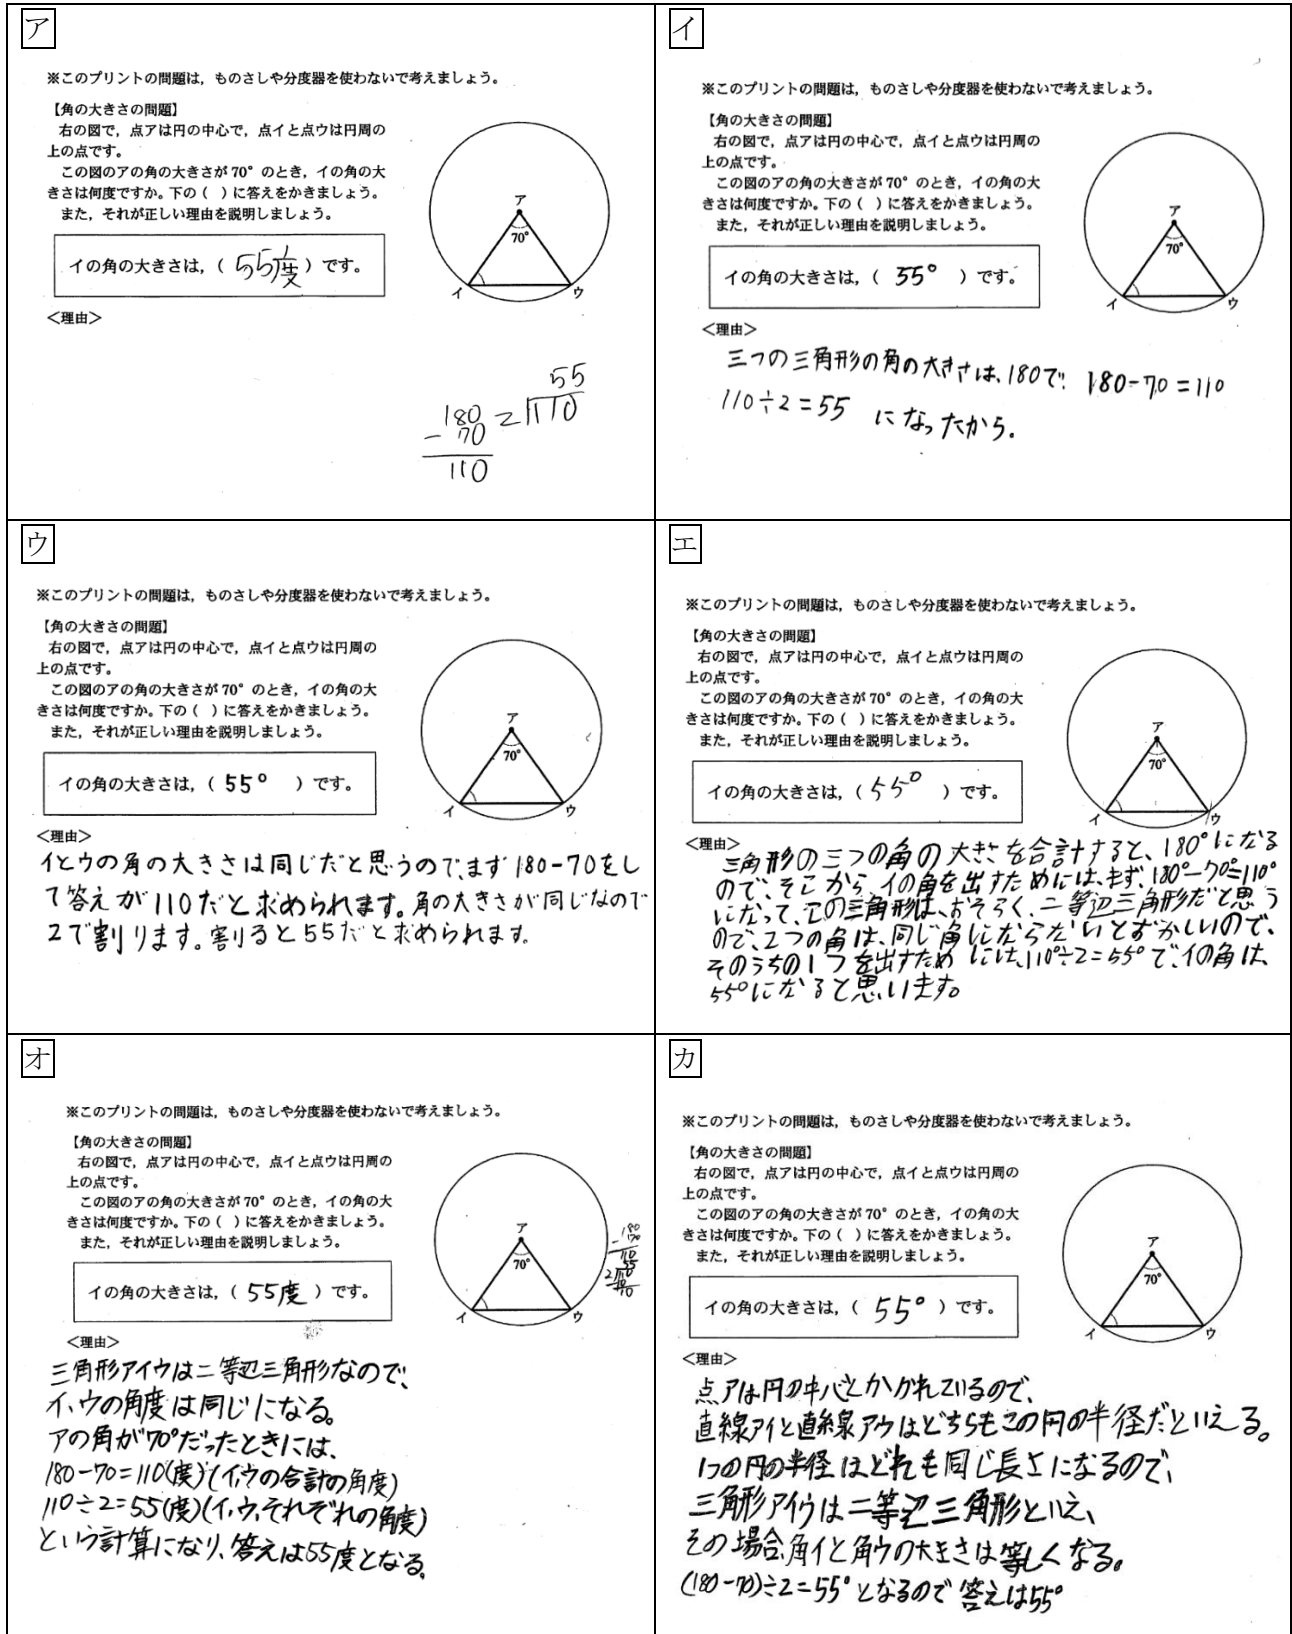 ア
※このプリントの問題は，ものさしや分度器を使わないで考えましょう。
【角の大きさの問題】
右の図で，点アは円の中心で，点イと点ウは円周の
上の点です。
この図のアの角の大きさが70°のとき，イの角の大
きさは何度ですか。下の（ ）に答えをかきましょう。
また，それが正しい理由を説明しましょう。
イの角の大きさは，（ 55度 ）です。
ア
70°
イ
ウ
＜理由＞
180
- 70
110
55
2)110
イ
※このプリントの問題は，ものさしや分度器を使わないで考えましょう。
【角の大きさの問題】
右の図で，点アは円の中心で，点イと点ウは円周の
上の点です。
この図のアの角の大きさが70°のとき，イの角の大
きさは何度ですか。下の（ ）に答えをかきましょう。
また，それが正しい理由を説明しましょう。
イの角の大きさは，（ 55° ）です。
ア
70°
イ
ウ
＜理由＞
三つの三角形の角の大きさは、180で、180-70=110
110÷2=55 になったから。
ウ
※このプリントの問題は，ものさしや分度器を使わないで考えましょう。
【角の大きさの問題】
右の図で，点アは円の中心で，点イと点ウは円周の
上の点です。
この図のアの角の大きさが70°のとき，イの角の大
きさは何度ですか。下の（ ）に答えをかきましょう。
また，それが正しい理由を説明しましょう。
イの角の大きさは，（ 55° ）です。
ア
70°
イ
ウ
＜理由＞
イとウの角の大きさは同じだと思うので、まず180-70をし
て答えが110だと求められます。角の大きさが同じなので
2で割ります。割ると55だと求められます。
エ
※このプリントの問題は，ものさしや分度器を使わないで考えましょう。
【角の大きさの問題】
右の図で，点アは円の中心で，点イと点ウは円周の
上の点です。
この図のアの角の大きさが70°のとき，イの角の大
きさは何度ですか。下の（ ）に答えをかきましょう。
また，それが正しい理由を説明しましょう。
イの角の大きさは，（ 55° ）です。
ア
70°
イ
ウ
＜理由＞
三角形の三つの角の大きさを合計すると、180°になる
ので、そこから、イの角を出すためには、まず、180°-70°=110°
になって、この三角形は、おそらく、二等辺三角形だと思う
ので、2つの角は、同じ角にならないとおかしいので、
そのうちの1つを出すためには、110°÷2=55°で、イの角は、
55°になると思います。
オ
※このプリントの問題は，ものさしや分度器を使わないで考えましょう。
【角の大きさの問題】
右の図で，点アは円の中心で，点イと点ウは円周の
上の点です。
この図のアの角の大きさが70°のとき，イの角の大
きさは何度ですか。下の（ ）に答えをかきましょう。
また，それが正しい理由を説明しましょう。
イの角の大きさは，（ 55度 ）です。
ア
70°
イ
ウ
180
- 70
110
55
2)110
＜理由＞
三角形アイウは二等辺三角形なので、
イ、ウの角度は同じになる。
アの角が70°だったときには、
180-70=110(度)(イ、ウの合計の角度)
110÷2=55(度)(イ、ウ、それぞれの角度)
という計算になり、答えは55度となる。
カ
※このプリントの問題は，ものさしや分度器を使わないで考えましょう。
【角の大きさの問題】
右の図で，点アは円の中心で，点イと点ウは円周の
上の点です。
この図のアの角の大きさが70°のとき，イの角の大
きさは何度ですか。下の（ ）に答えをかきましょう。
また，それが正しい理由を説明しましょう。
イの角の大きさは，（ 55° ）です。
ア
70°
イ
ウ
＜理由＞
点アは円の中心とかかれているので、
直線アイと直線アウはどちらもこの円の半径だといえる。
1つの円の半径はどれも同じ長さになるので、
三角形アイウは二等辺三角形といえ、
その場合、角イと角ウの大きさは等しくなる。
(180-70)÷2=55°となるので答えは55°